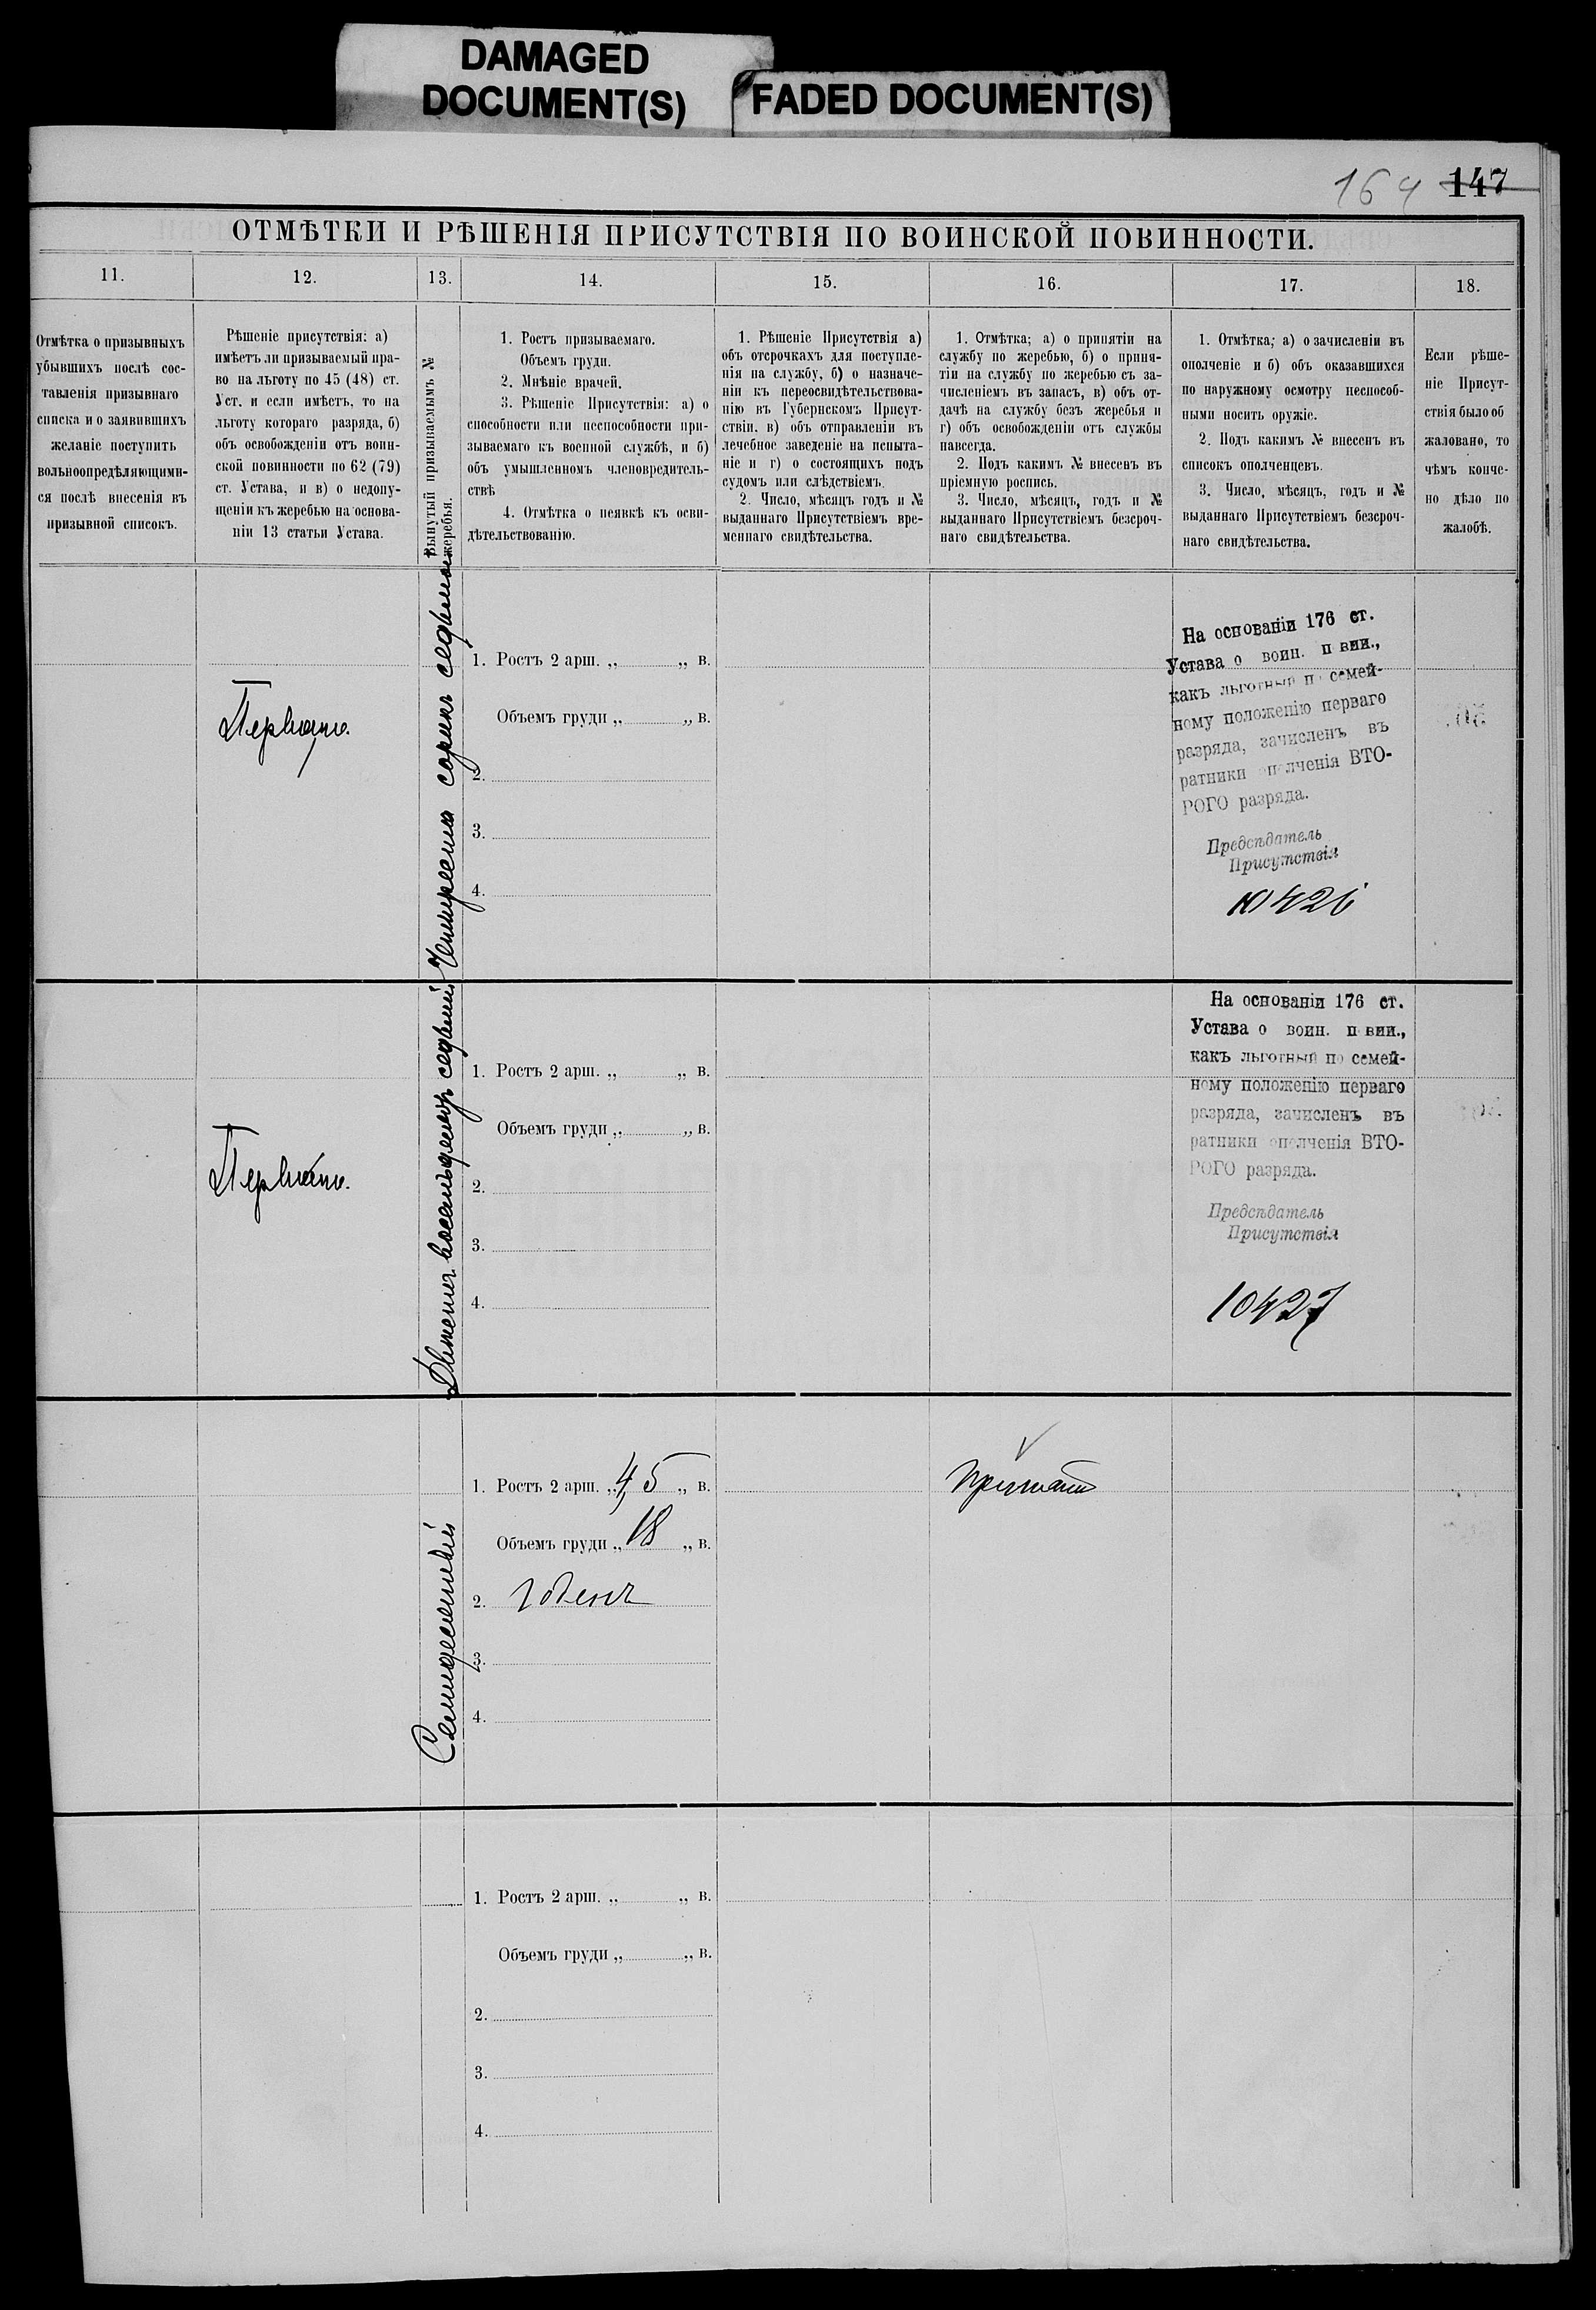 DAMAGED
DOCUMENT(S)
FADED DOCUMENT(S)
164 147
ОТМѢТКИ И РѢШЕНІЯ ПРИСУТСТВІЯ ПО ВОИНСКОЙ ПОВИННОСТИ.
11.
12.
13.
14.
15.
16.
17.
18.
Отмѣтка о призывныхъ
убывшихъ послѣ сос-
тавленія призывнаго
списка и о заявившихъ
желаніе поступить
вольноопредѣляющими-
ся послѣ внесенія въ
призывной списокъ.
Рѣшеніе присутствія: а)
имѣетъ ли призываемый пра-
во на льготу по 45 (48) ст.
Уст. и если имѣетъ, то на
льготу котораго разряда, б)
объ освобожденіи отъ воин-
ской повинности по 62 (79)
ст. Устава, и в) о недопу-
щеніи къ жеребью на основа-
ніи 13 статьи Устава.
Вынутый призываемымъ №
жеребья.
1. Ростъ призываемаго.
Объемъ груди.
2. Мнѣніе врачей.
3. Рѣшеніе Присутствія: а) о
способности или неспособности при-
зываемаго къ военной службѣ, и б)
объ умышленномъ членовредитель-
ствѣ
4. Отмѣтка о неявкѣ къ осви-
дѣтельствованію.
1. Рѣшеніе Присутствія а)
объ отсрочкахъ для поступле-
нія на службу, б) о назначе-
ніи къ переосвидѣтельствова-
нію въ Губернскомъ Присут-
ствіи, в) объ отправленіи въ
лечебное заведеніе на испыта-
ніе и г) о состоящихъ подъ
судомъ или слѣдствіемъ.
2. Число, мѣсяцъ годъ и №
выданнаго Присутствіемъ вре-
меннаго свидѣтельства.
1. Отмѣтка; а) о принятіи на
службу по жеребью, б) о приня-
тіи на службу по жеребью съ за-
численіемъ въ запасъ, в) объ от-
дачѣ на службу безъ жеребья и
г) объ освобожденіи отъ службы
навсегда.
2. Подъ какимъ № внесенъ въ
пріемную роспись.
3. Число, мѣсяцъ, годъ и №
выданнаго Присутствіемъ безсроч-
наго свидѣтельства.
1. Отмѣтка; а) о зачисленіи въ
ополченіе и б) объ оказавшихся
по наружному осмотру неспособ-
ными носить оружіе.
2. Подъ какимъ № внесенъ въ
списокъ ополченцевъ.
3. Число, мѣсяцъ, годъ и №
выданнаго Присутствіемъ безсроч-
наго свидѣтельства.
Если рѣше-
ніе Присут-
ствія было об
жаловано, то
чѣмъ конче-
но дѣло по
жалобѣ.
Четыреста сорокъ седьмой
1. Ростъ 2 арш. „ „ в.
Объемъ груди „ „ в.
2.
3.
4.
На основаніи 176 ст.
Устава о воин. п вин.,
какъ льготный по семей-
ному положенію перваго
разряда, зачисленъ въ
ратники ополченія ВТО-
РОГО разряда.
Предсѣдатель
Присутствія
10426
Двѣсти восемьдесятъ седьмой
1. Ростъ 2 арш. „ „ в.
Объемъ груди „ „ в.
2.
3.
4.
На основаніи 176 ст.
Устава о воин. п вин.,
какъ льготный по семей-
ному положенію перваго
разряда, зачисленъ въ
ратники ополченія ВТО-
РОГО разряда.
Предсѣдатель
Присутствія
10427
Семидесятый
1. Ростъ 2 арш. „ 4,5 „ в.
Объемъ груди „ 18 „ в.
2. годенъ
3.
4.
принятъ
1. Ростъ 2 арш. „ „ в.
Объемъ груди „ „ в.
2.
3.
4.